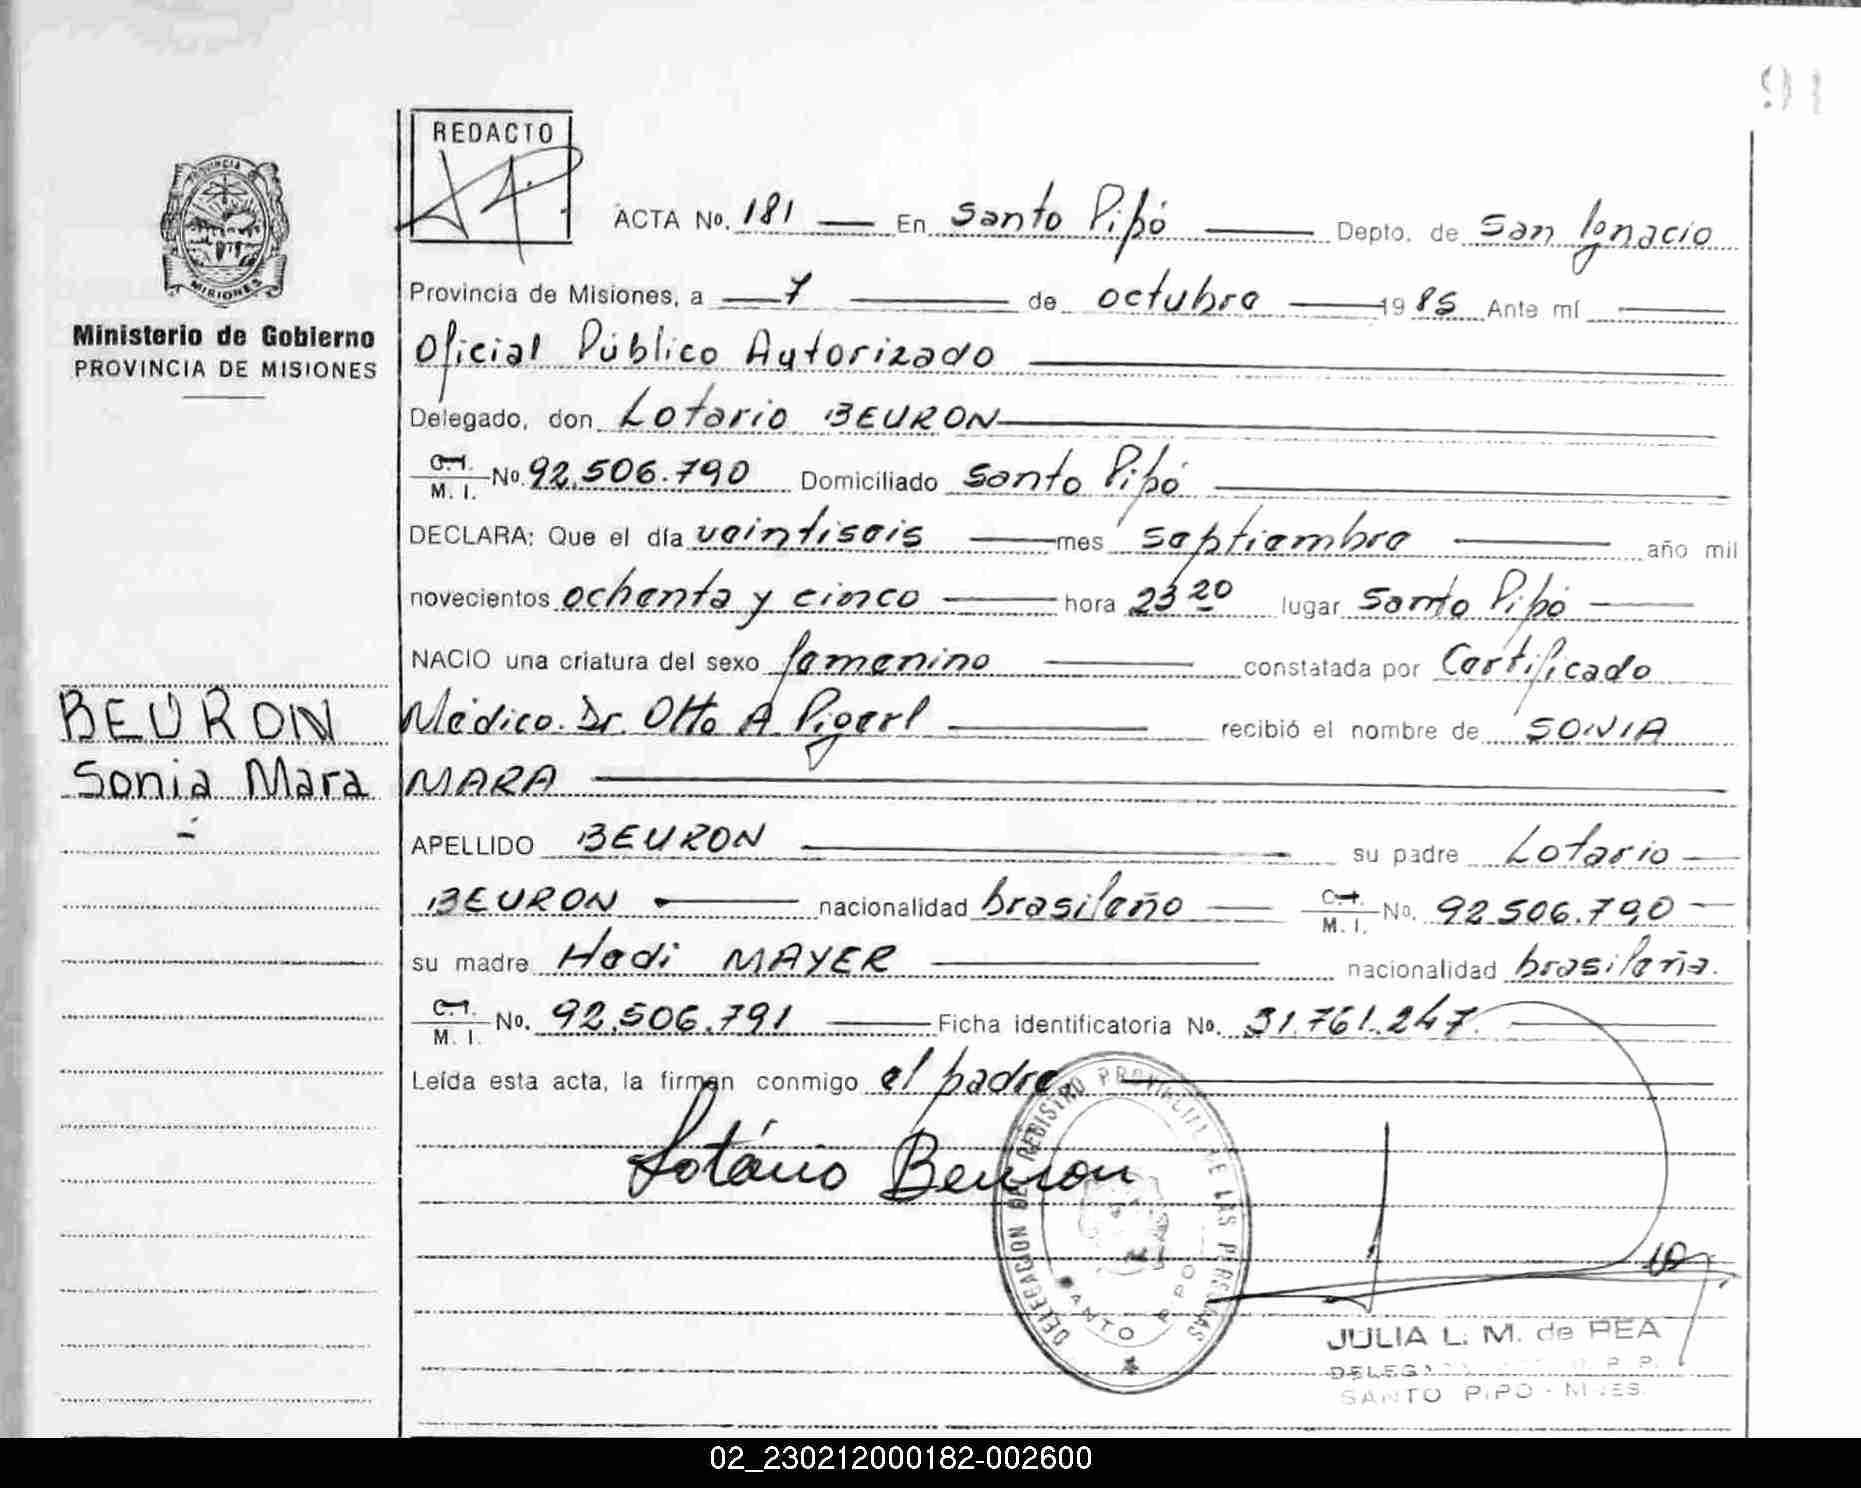 91
REDACTO
ACTA No. 181 En Santo Pipó Depto. de San Ignacio
PROVINCIA
MISIONES
Provincia de Misiones, a 7 de octubre 1985 Ante mí
Ministerio de Gobierno
PROVINCIA DE MISIONES
Oficial Público Autorizado
Delegado, don Lotario BEURON
C.I. M. I. No. 92.506.790 Domiciliado Santo Pipó
DECLARA: Que el día veintiseis mes septiembre año mil
novecientos ochenta y cinco hora 23 20 lugar Santo Pipó
NACIO una criatura del sexo femenino constatada por Certificado
BEURON
Médico. Dr. Otto A. Pigerl recibió el nombre de SONIA
Sonia Mara
MARA
APELLIDO BEURON su padre Lotario
BEURON nacionalidad brasileño C.I. M. I. No. 92.506.790
su madre Hedi MAYER nacionalidad brasileña.
C.I. M. I. No. 92.506.791 Ficha identificatoria No. 31.761.247
Leída esta acta, la firman conmigo el padre
Lotário Beuron
DELEGACION DEL REGISTRO PROVINCIAL DE LAS PERSONAS
SANTO PIPO
JULIA L. M. de PEA
SANTO PIPO - MNES.
02_230212000182-002600